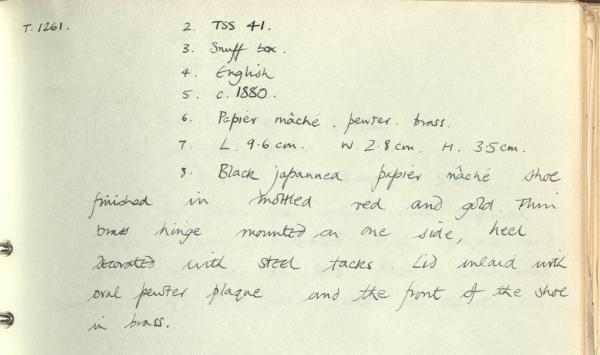 T.1261. 2. TSS 41.
3. Snuff box.
4. English
5. c. 1880.
6. Papier mâché. pewter. brass.
7. L. 9.6cm. W. 2.8cm. H. 3.5cm.
8. Black japanned papier mâché shoe
finished in mottled red and gold. Thin
brass hinge mounted on one side, heel
decorated with steel tacks. Lid inlaid with
oval pewter plaque and the front of the shoe
in brass.